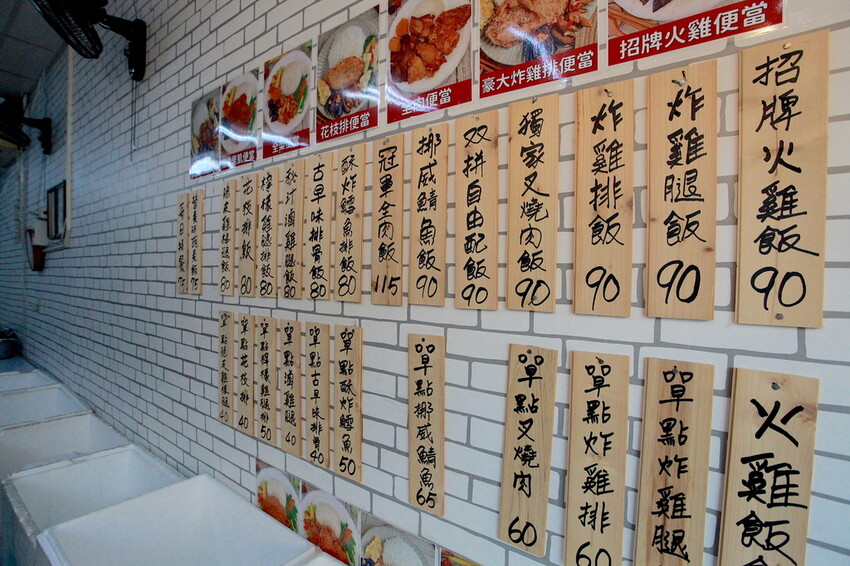 招牌火雞便當
豪大炸雞排便當
全肉便當
花枝排便當
招牌火雞飯 90
炸雞腿飯 90
炸雞排飯 90
獨家叉燒肉飯 90
双拼自由配飯 90
挪威鯖魚飯 90
冠軍全肉飯 115
酥炸鱈魚排飯 80
古早味排骨飯 80
秋汀滷雞腿飯 80
檸檬雞腿排飯 80
花枝排飯 80
80
75
每日特餐 75
火雞飯
單點炸雞腿
單點炸雞排 60
單點叉燒肉 60
單點挪威鯖魚 65
單點酥炸鱈魚 50
單點古早味排骨 40
單點滷雞腿 40
單點檸檬雞腿排 50
單點花枝排 40
40